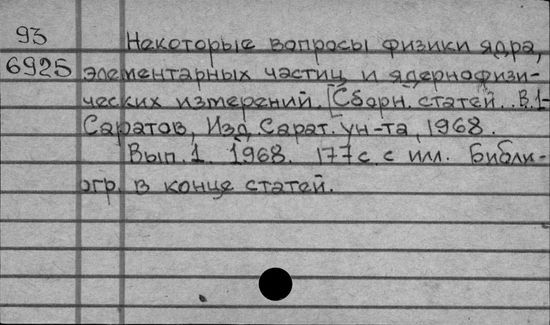 93
6925
Некоторые вопросы физики ядра,
элементарных частиц и ядернофизи-
ческих измерений. [Сборн. статей. В.1-
Саратов, Изд. Сарат. ун-та, 1968.
Вып. 1. 1968. 177 с. с илл. Библи-
огр. в конце статей.